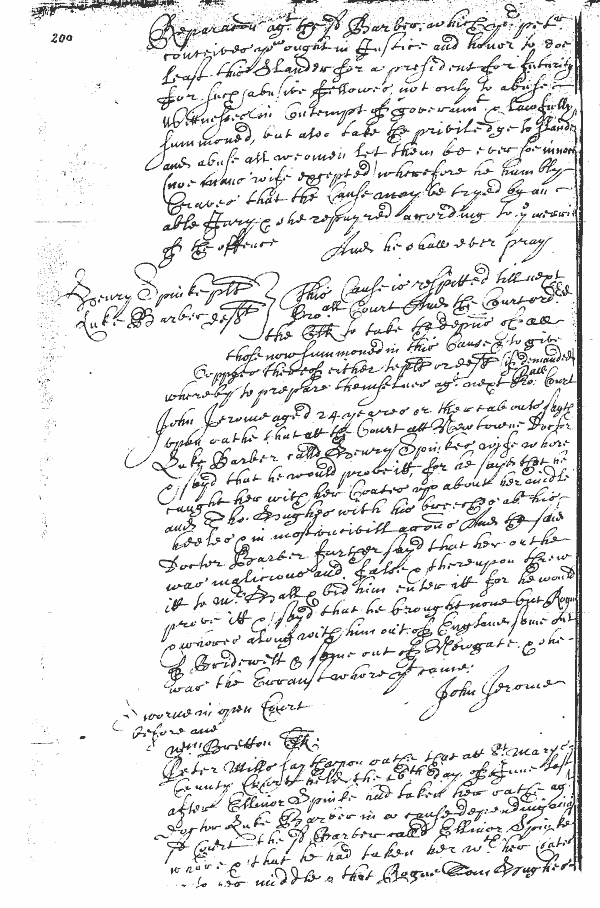 200
Reparacon agt the sd Barber, which yor petr
conceives ought in Justice and honor to doe
least this Slander for a president for futurity
for such abusive fellowes not only to abuse
Wittnesses in Contempt of Governmt & lawfully
summoned, but also take the priviledge to slander
and abuse all women let them be ever soe innocent
(noe mans wife excepted) wherefore he humbly
Craves that the Cause may be tryed by an
able Jury & he repayred according to ye
of the offence And he shall ever pray
Henry Spinke plt
Luke Barber deft
This Cause is respitted till next
Proall Court And the Court ordr
the to take the depns of all
those now summoned in this Cause & to give
Coppyes thereof either to plt or deft if demanded
whereby to prepare themselves agt next Proall Court
John Jerome aged 24 yeares or thereabouts sayth
upon oathe that att the Court att Newtowne Doctor
Luke Barber calld Henry Spinkes wife whore
& sayd that he would prove itt for he sayd that he
caught her with her Coates up about her midle
and Tho: Hughes with his breeches att his
heeles in most uncivill Actons And the said
Doctor Barber further sayd that her oathe
was malicious and false & thereupon threw
itt to Mr Hall & bid him enter itt for he would
prove itt & sayd that he brought none but Rogues
& whores along with him out of England some out
of Bridewell & some out of Newgate, & she
was the whore yt came.
John Jerome
Sworne in open Court
before me
Wm Bretton
Peter Mills sayth upon oathe that att St Maryes
County Court held the 16th day of June last
after Ellinor Spinke had taken her oathe agt
Doctor Luke Barber in a cause depending in
sd Court the sd Barber calld Ellinor Spinke
whore & that he had taken her wth her Coates
to her middle & that Rogue Tom Hughes